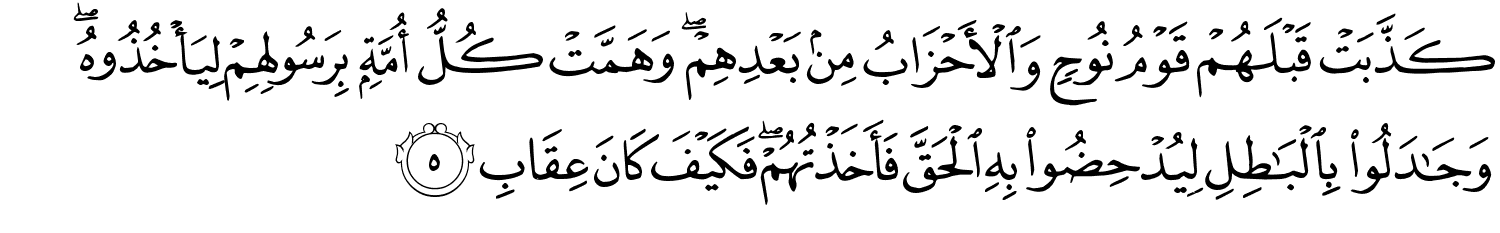 كَذَّبَتۡ قَبۡلَهُمۡ قَوۡمُ نُوحٖ وَٱلۡأَحۡزَابُ مِنۢ بَعۡدِهِمۡۖ وَهَمَّتۡ كُلُّ أُمَّةِۭ بِرَسُولِهِمۡ لِيَأۡخُذُوهُۖ
وَجَٰدَلُواْ بِٱلۡبَٰطِلِ لِيُدۡحِضُواْ بِهِ ٱلۡحَقَّ فَأَخَذۡتُهُمۡۖ فَكَيۡفَ كَانَ عِقَابِ ٥